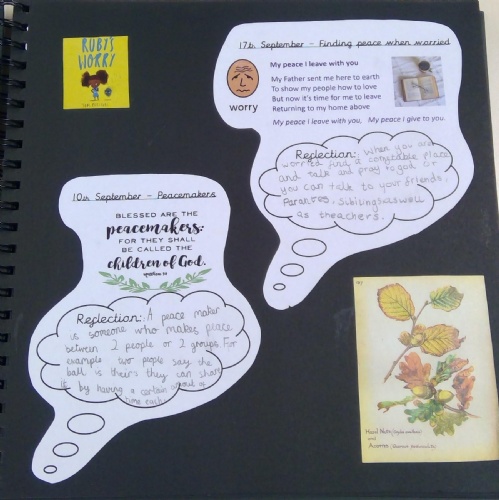 RUBY'S
WORRY
17th September - Finding peace when worried
My peace I leave with you
My Father sent me here to earth
To show my people how to love
But now it's time for me to leave
Returning to my home above
My peace I leave with you, My peace I give to you.
worry
Reflection: When you are
worried find a comftable place
and talk and pray to god. Or
you can talk to your friends,
Parantes, siblings aswell
as theachers.
10th September - Peacemakers
BLESSED ARE THE
peacemakers:
FOR THEY SHALL
BE CALLED THE
children of God.
Reflection: A peace maker
is someone who makes peace
between 2 people or 2 groups. For
example two people say the
ball is theirs they can share
it by having a certain amount of
time each.
Hazel Nuts
and
Acorns